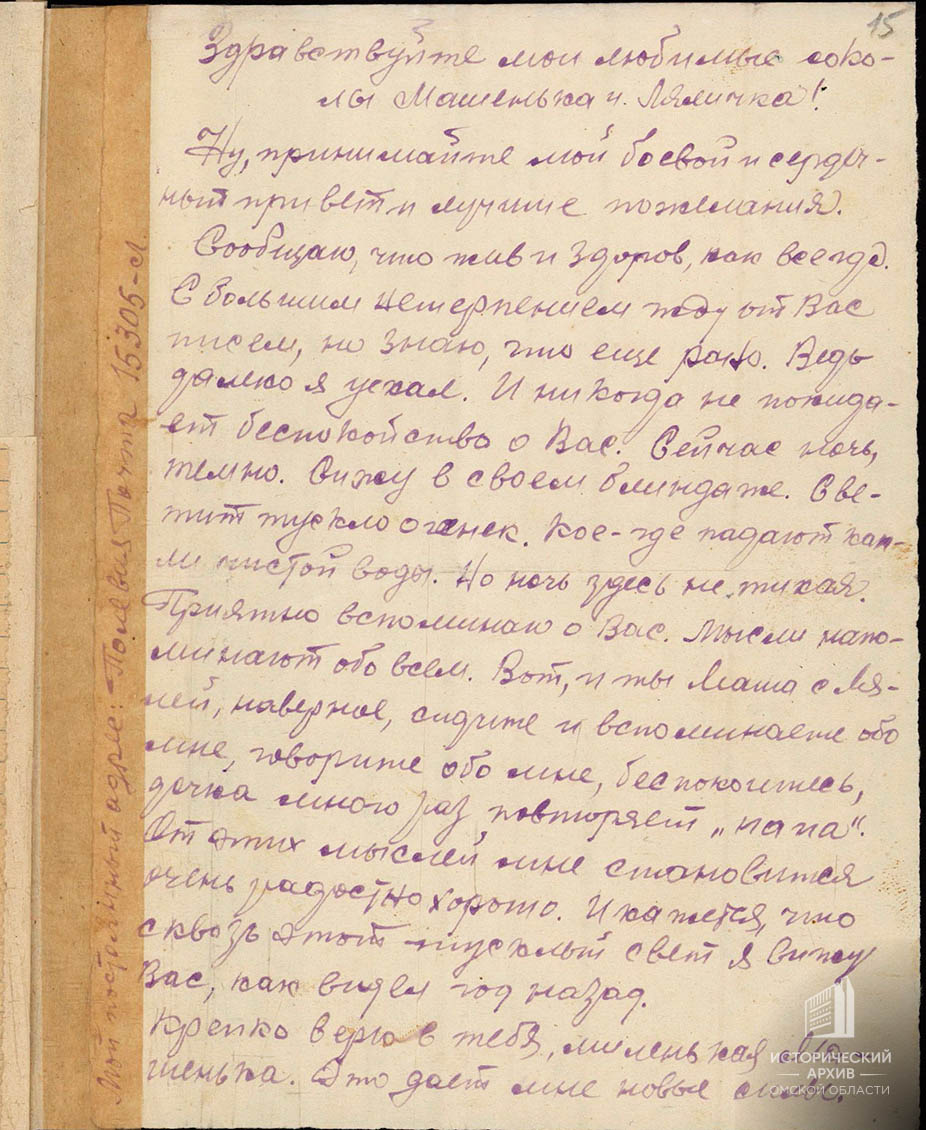 15
Здравствуйте мои любимые соко-
лы Машенька и Ляличка!
Ну, принимайте мой боевой и сердеч-
ный привет и лучшие пожелания.
Сообщаю, что жив и здоров, как всегда.
С большим нетерпением жду от Вас
писем, но знаю, что еще рано. Ведь
далеко я уехал. И никогда не покида-
ет беспокойство о Вас. Сейчас ночь,
темно. Сижу в своем блиндаже. Све-
тит тускло огонек. Кое-где падают кап-
ли чистой воды. Но ночь здесь не тихая.
Приятно вспоминаю о Вас. Мысли напо-
минают обо всем. Вот, и ты Маша с Ля-
лей, наверное, сидите и вспоминаете обо
мне, говорите обо мне, беспокоитесь,
дочка много раз повторяет „папа“.
От этих мыслей мне становится
очень радостно хорошо. И кажется, что
сквозь этот тусклый свет я вижу
Вас, как видел год назад.
Крепко верю в тебя, миленькая Ма-
шенька. Это дает мне новые силы.
Мой постоянный адрес:- Полевая Почта 15305-Л.
ИСТОРИЧЕСКИЙ
АРХИВ
ОМСКОЙ ОБЛАСТИ